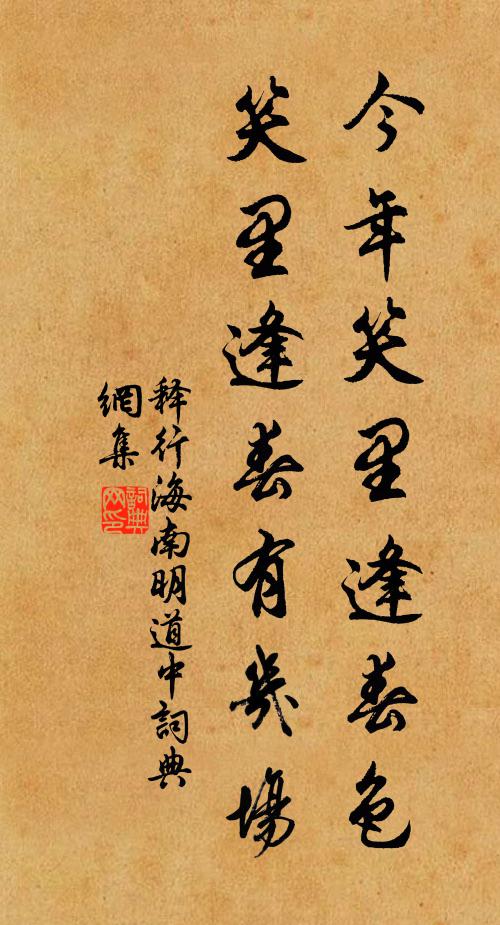 今年笑里逢春色
笑里逢春有几場
释行海南明道中詞典
網集
詞典
网印